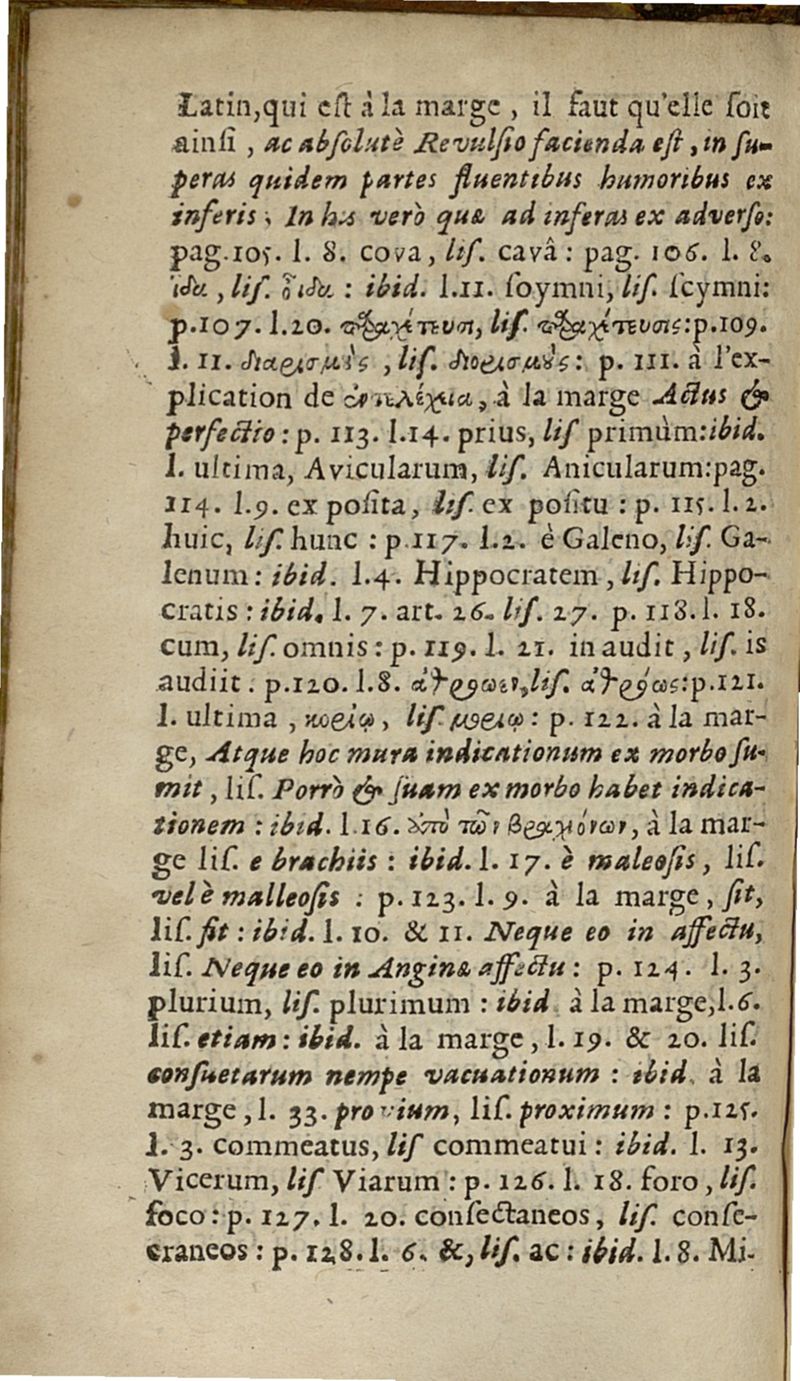 Latin, qui eſt à la marge, il faut qu'elle ſoit
ainſi, ac abſolutè Revulſio facienda eſt, in ſu-
peras quidem partes fluentibus humoribus ex
inferis; In his verò quæ ad inferas ex adverſo:
pag. 105. l. 8. cova, liſ. cavâ: pag. 106. l. 8.
ἴδα, liſ. οἶδα: ibid. l. 11. ſoymni, liſ. ſcymni:
p. 107. l. 20. liſ. p. 109.
l. 11. διαρισμὸς, liſ. διορισμὸς: p. 111. à l'ex-
plication de ἐντελέχια, à la marge Actus &
perfectio: p. 113. l. 14. prius, liſ primùm: ibid.
l. ultima, Avicularum, liſ. Anicularum: pag.
114. l. 9. ex poſita, liſ. ex poſitu: p. 115. l. 2.
huic, liſ. hunc: p. 117. l. 2. è Galeno, liſ. Ga-
lenum: ibid. l. 4. Hippocratem, liſ. Hippo-
cratis: ibid. l. 7. art. 26. liſ. 27. p. 118. l. 18.
cum, liſ. omnis: p. 119. l. 21. inaudit, liſ. is
audiit: p. 120. l. 8. liſ. ἀθρόως: p. 121.
l. ultima, κορίῳ, liſ. μορίῳ: p. 122. à la mar-
ge, Atque hoc mura indicationum ex morbo ſu-
mit, liſ. Porrò & ſuam ex morbo habet indica-
tionem: ibid. l. 16. ὑπὸ τῶν βραχιόνων, à la mar-
ge liſ. e brachiis: ibid. l. 17. è maleoſis, liſ.
vel è malleoſis: p. 123. l. 9. à la marge, ſit,
liſ. fit: ibid. l. 10. & 11. Neque eo in affectu,
liſ. Neque eo in Anginæ affectu: p. 124. l. 3.
plurium, liſ. plurimum: ibid. à la marge, l. 6.
liſ. etiam: ibid. à la marge, l. 19. & 20. liſ.
conſuetarum nempe vacuationum: ibid. à la
marge, l. 33. liſ. proximum: p. 125.
l. 3. commeatus, liſ commeatui: ibid. l. 13.
Vicerum, liſ Viarum: p. 126. l. 18. foro, liſ.
foco: p. 127. l. 20. conſectaneos, liſ. conſe-
craneos: p. 128. l. 6. &, liſ. ac: ibid. l. 8. Mi-